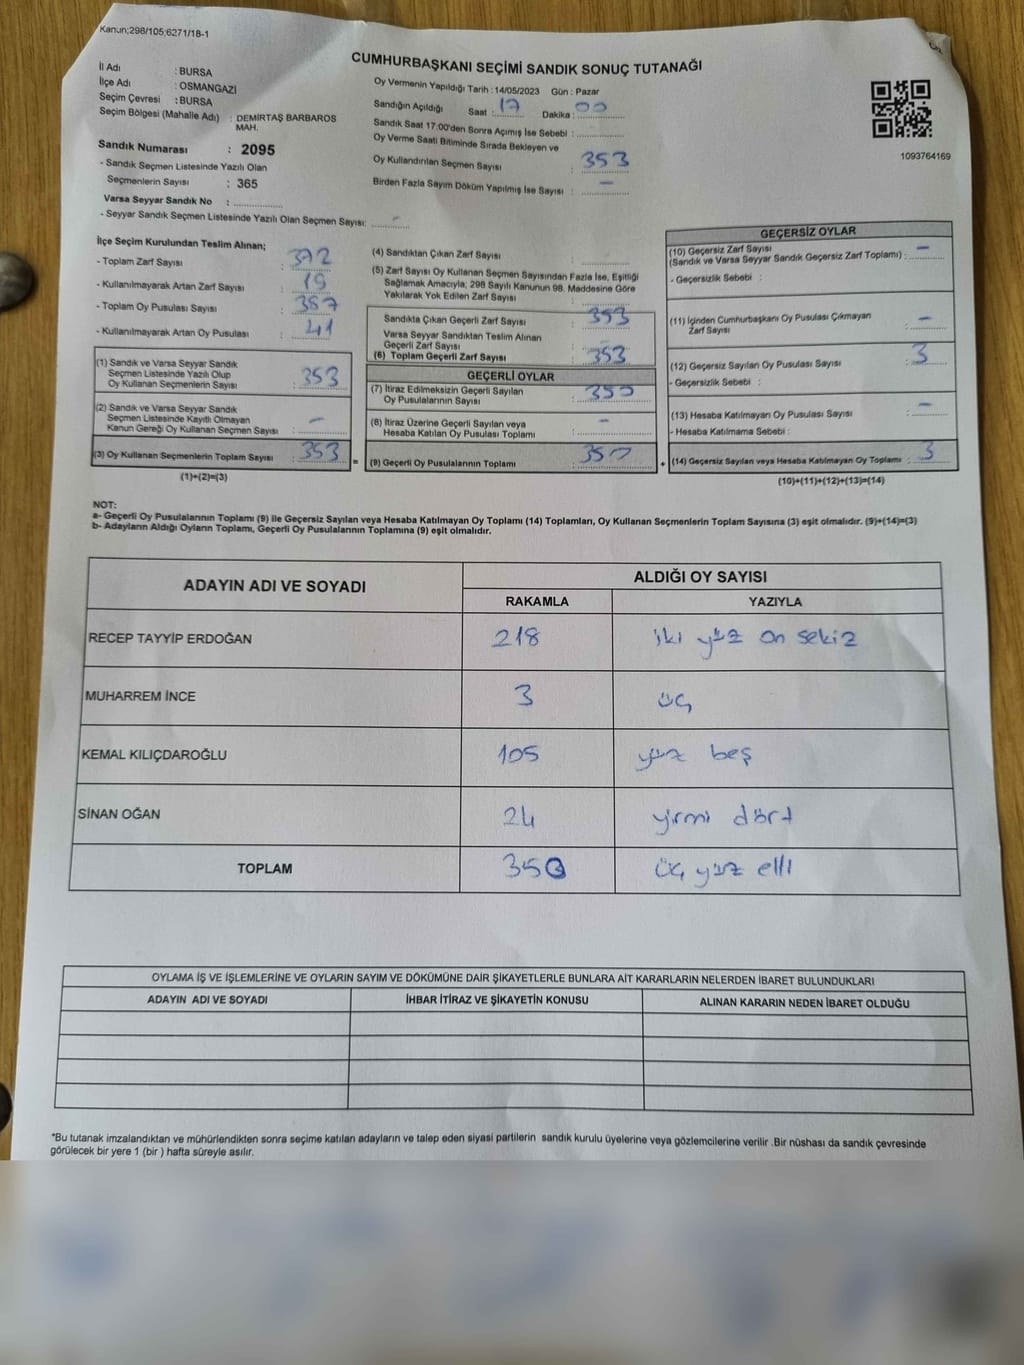 Kanun;298/105;6271/18-1
CUMHURBAŞKANI SEÇİMİ SANDIK SONUÇ TUTANAĞI
İl Adı : BURSA
İlçe Adı : OSMANGAZİ
Seçim Çevresi : BURSA
Seçim Bölgesi (Mahalle Adı) : DEMİRTAŞ BARBAROS
MAH.
Sandık Numarası : 2095
- Sandık Seçmen Listesinde Yazılı Olan
Seçmenlerin Sayısı : 365
Varsa Seyyar Sandık No :
- Seyyar Sandık Seçmen Listesinde Yazılı Olan Seçmen Sayısı: -
Oy Vermenin Yapıldığı Tarih : 14/05/2023 Gün : Pazar
Sandığın Açıldığı Saat : 17 Dakika : 00
Sandık Saat 17:00'den Sonra Açımış İse Sebebi :
Oy Verme Saati Bitiminde Sırada Bekleyen ve
Oy Kullandırılan Seçmen Sayısı : 353
Birden Fazla Sayım Döküm Yapılmış İse Sayısı : -
1093764169
İlçe Seçim Kurulundan Teslim Alınan;
- Toplam Zarf Sayısı : 372
- Kullanılmayarak Artan Zarf Sayısı : 19
- Toplam Oy Pusulası Sayısı : 387
- Kullanılmayarak Artan Oy Pusulası : 41
(1) Sandık ve Varsa Seyyar Sandık
Seçmen Listesinde Yazılı Olup
Oy Kullanan Seçmenlerin Sayısı : 353
(2) Sandık ve Varsa Seyyar Sandık
Seçmen Listesinde Kayıtlı Olmayan
Kanun Gereği Oy Kullanan Seçmen Sayısı : -
(3) Oy Kullanan Seçmenlerin Toplam Sayısı : 353
(1)+(2)=(3)
=
(4) Sandıktan Çıkan Zarf Sayısı :
(5) Zarf Sayısı Oy Kullanan Seçmen Sayısından Fazla İse, Eşitliği
Sağlamak Amacıyla; 298 Sayılı Kanunun 98. Maddesine Göre
Yakılarak Yok Edilen Zarf Sayısı :
Sandıkta Çıkan Geçerli Zarf Sayısı : 353
Varsa Seyyar Sandıktan Teslim Alınan
Geçerli Zarf Sayısı :
(6) Toplam Geçerli Zarf Sayısı : 353
GEÇERLİ OYLAR
(7) İtiraz Edilmeksizin Geçerli Sayılan
Oy Pusulalarının Sayısı : 350
(8) İtiraz Üzerine Geçerli Sayılan veya
Hesaba Katılan Oy Pusulası Toplamı : -
(9) Geçerli Oy Pusulalarının Toplamı : 350
+
GEÇERSİZ OYLAR
(10) Geçersiz Zarf Sayısı
(Sandık ve Varsa Seyyar Sandık Geçersiz Zarf Toplamı) : -
- Geçersizlik Sebebi :
(11) İçinden Cumhurbaşkanı Oy Pusulası Çıkmayan
Zarf Sayısı : -
(12) Geçersiz Sayılan Oy Pusulası Sayısı : 3
- Geçersizlik Sebebi :
(13) Hesaba Katılmayan Oy Pusulası Sayısı : -
- Hesaba Katılmama Sebebi :
(14) Geçersiz Sayılan veya Hesaba Katılmayan Oy Toplamı : 3
(10)+(11)+(12)+(13)=(14)
NOT:
a- Geçerli Oy Pusulalarının Toplamı (9) ile Geçersiz Sayılan veya Hesaba Katılmayan Oy Toplamı (14) Toplamları, Oy Kullanan Seçmenlerin Toplam Sayısına (3) eşit olmalıdır. (9)+(14)=(3)
b- Adayların Aldığı Oyların Toplamı, Geçerli Oy Pusulalarının Toplamına (9) eşit olmalıdır.
ADAYIN ADI VE SOYADI
ALDIĞI OY SAYISI
RAKAMLA YAZIYLA
RECEP TAYYİP ERDOĞAN 218 iki yüz on sekiz
MUHARREM İNCE 3 üç
KEMAL KILIÇDAROĞLU 105 yüz beş
SİNAN OĞAN 24 yirmi dört
TOPLAM 350 üç yüz elli
OYLAMA İŞ VE İŞLEMLERİNE VE OYLARIN SAYIM VE DÖKÜMÜNE DAİR ŞİKAYETLERLE BUNLARA AİT KARARLARIN NELERDEN İBARET BULUNDUKLARI
ADAYIN ADI VE SOYADI İHBAR İTİRAZ VE ŞİKAYETİN KONUSU ALINAN KARARIN NEDEN İBARET OLDUĞU
*Bu tutanak imzalandıktan ve mühürlendikten sonra seçime katılan adayların ve talep eden siyasi partilerin sandık kurulu üyelerine veya gözlemcilerine verilir .Bir nüshası da sandık çevresinde
görülecek bir yere 1 (bir ) hafta süreyle asılır.